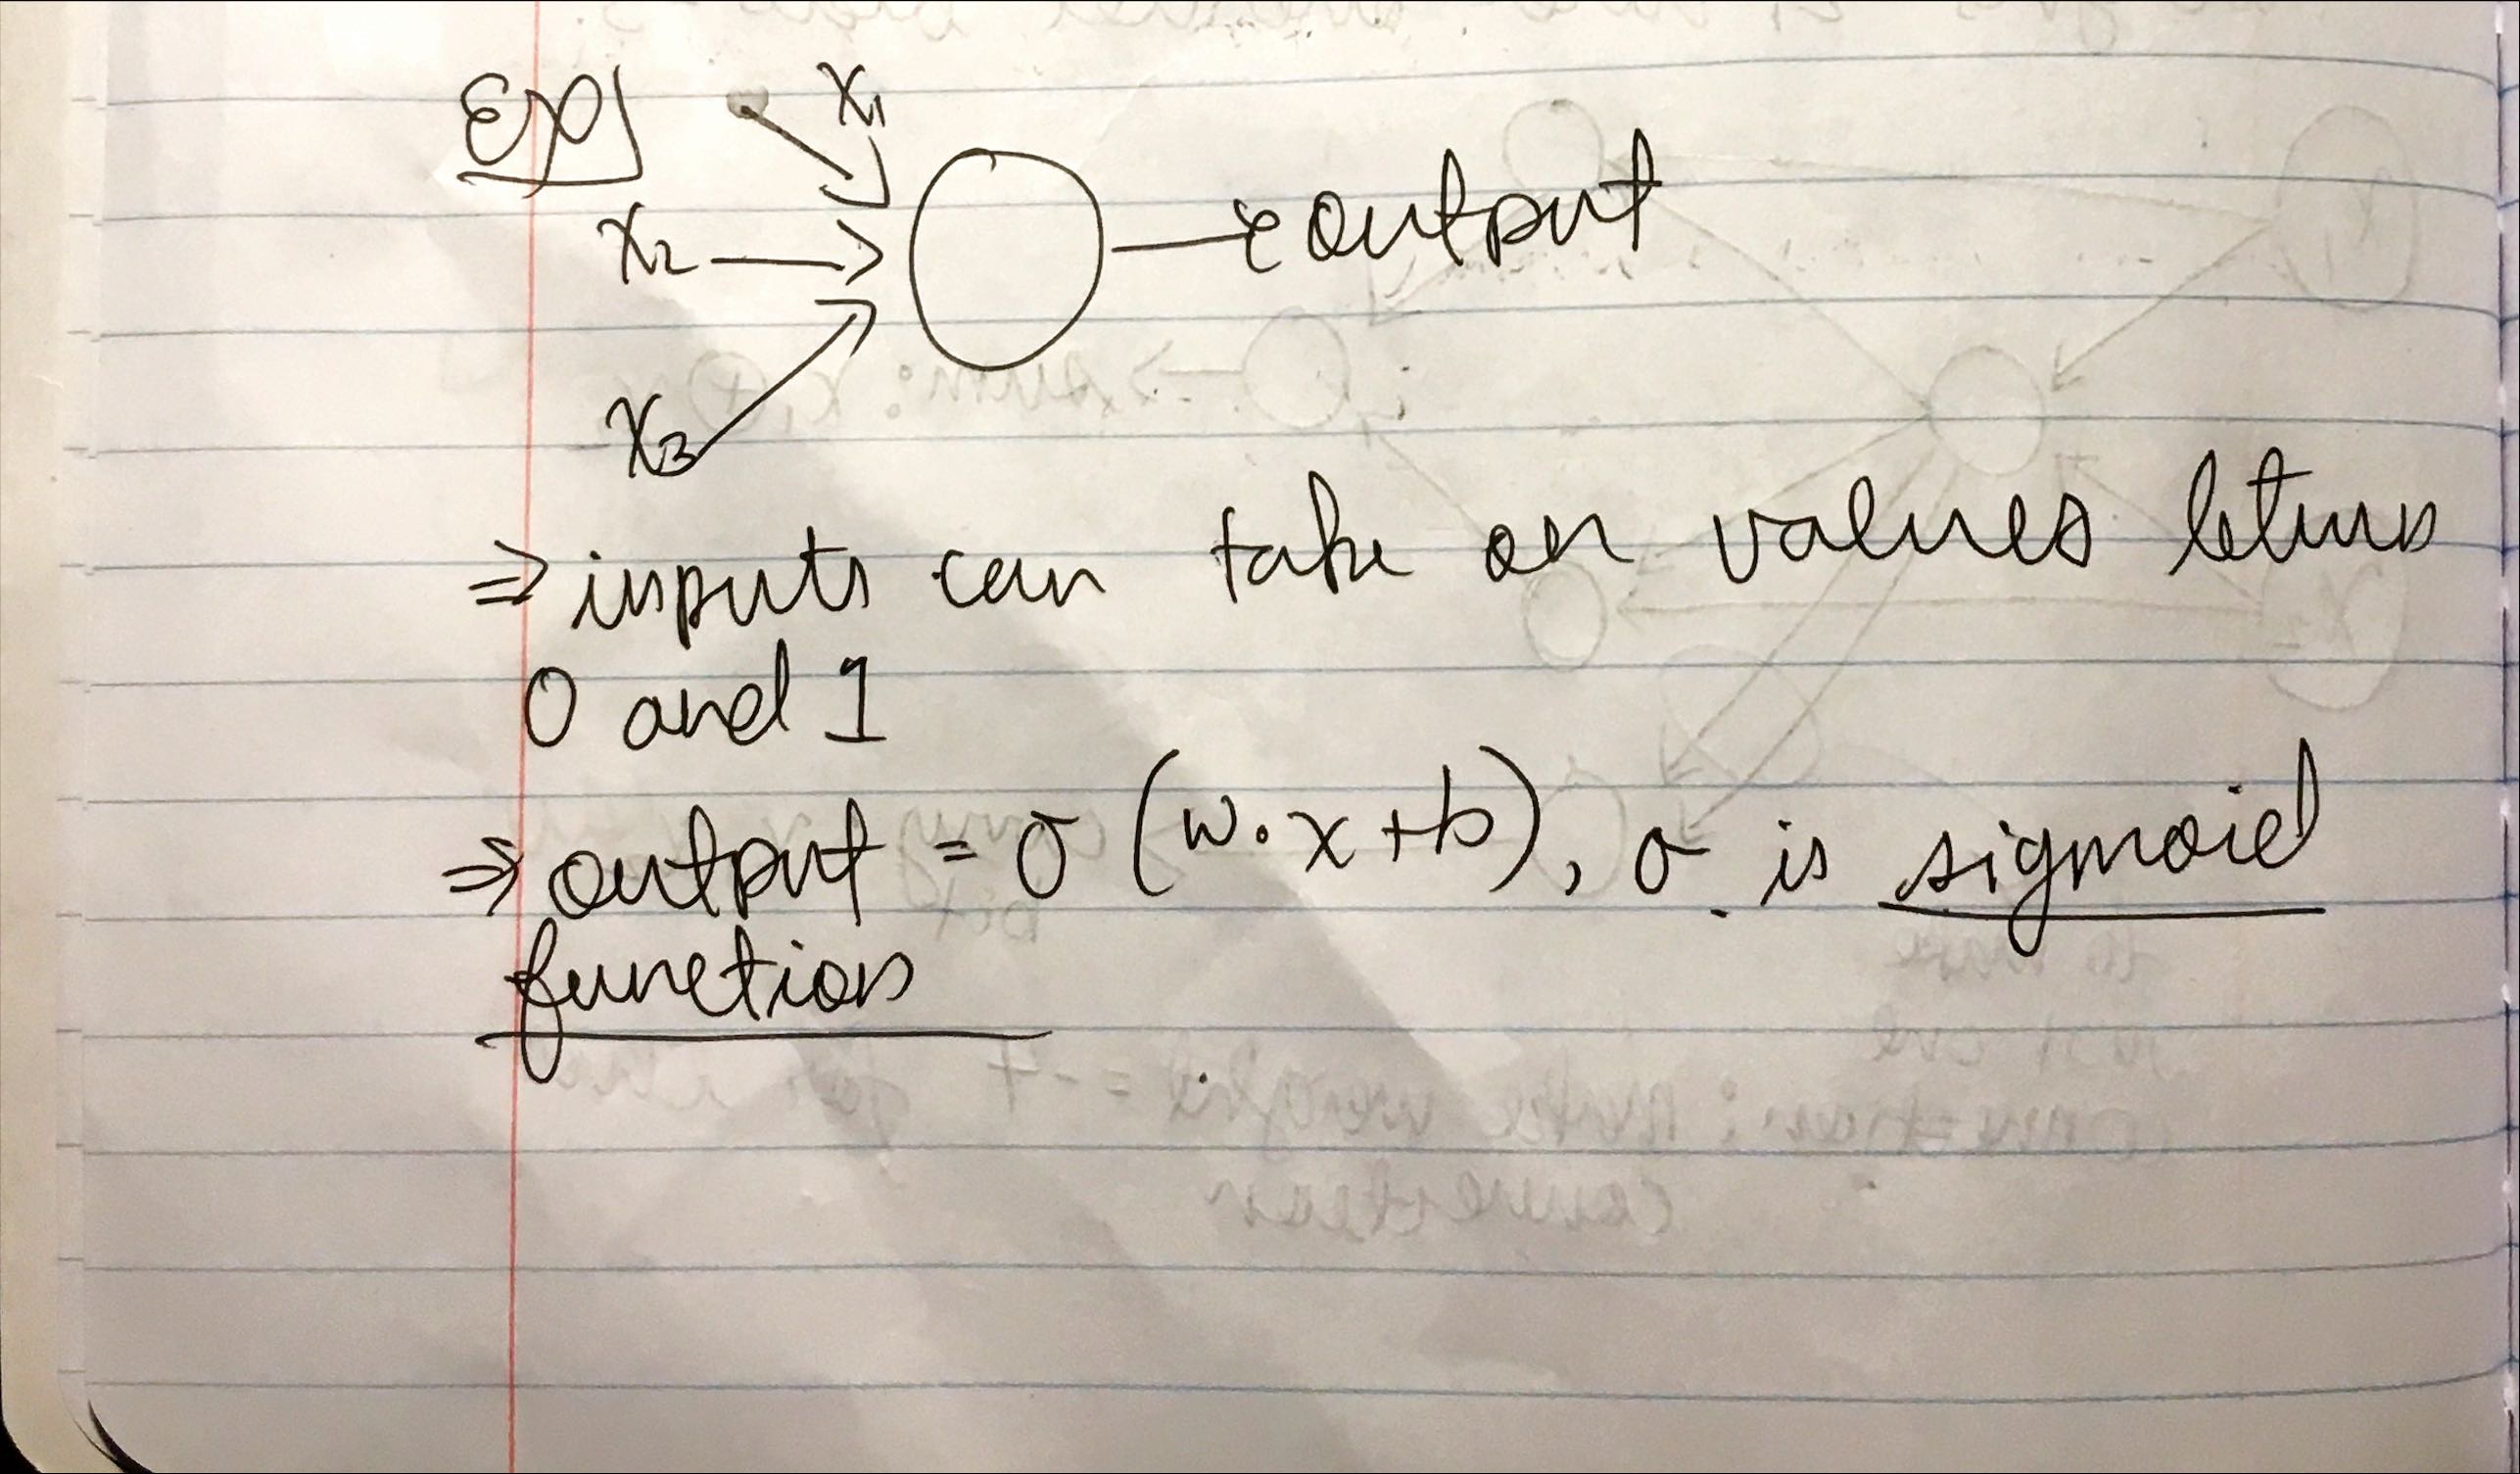 Ex
x₁
x₂
x₃
output
⇒ inputs can take on values betwn
0 and 1
⇒ output = σ (w·x+b), σ is sigmoid
function